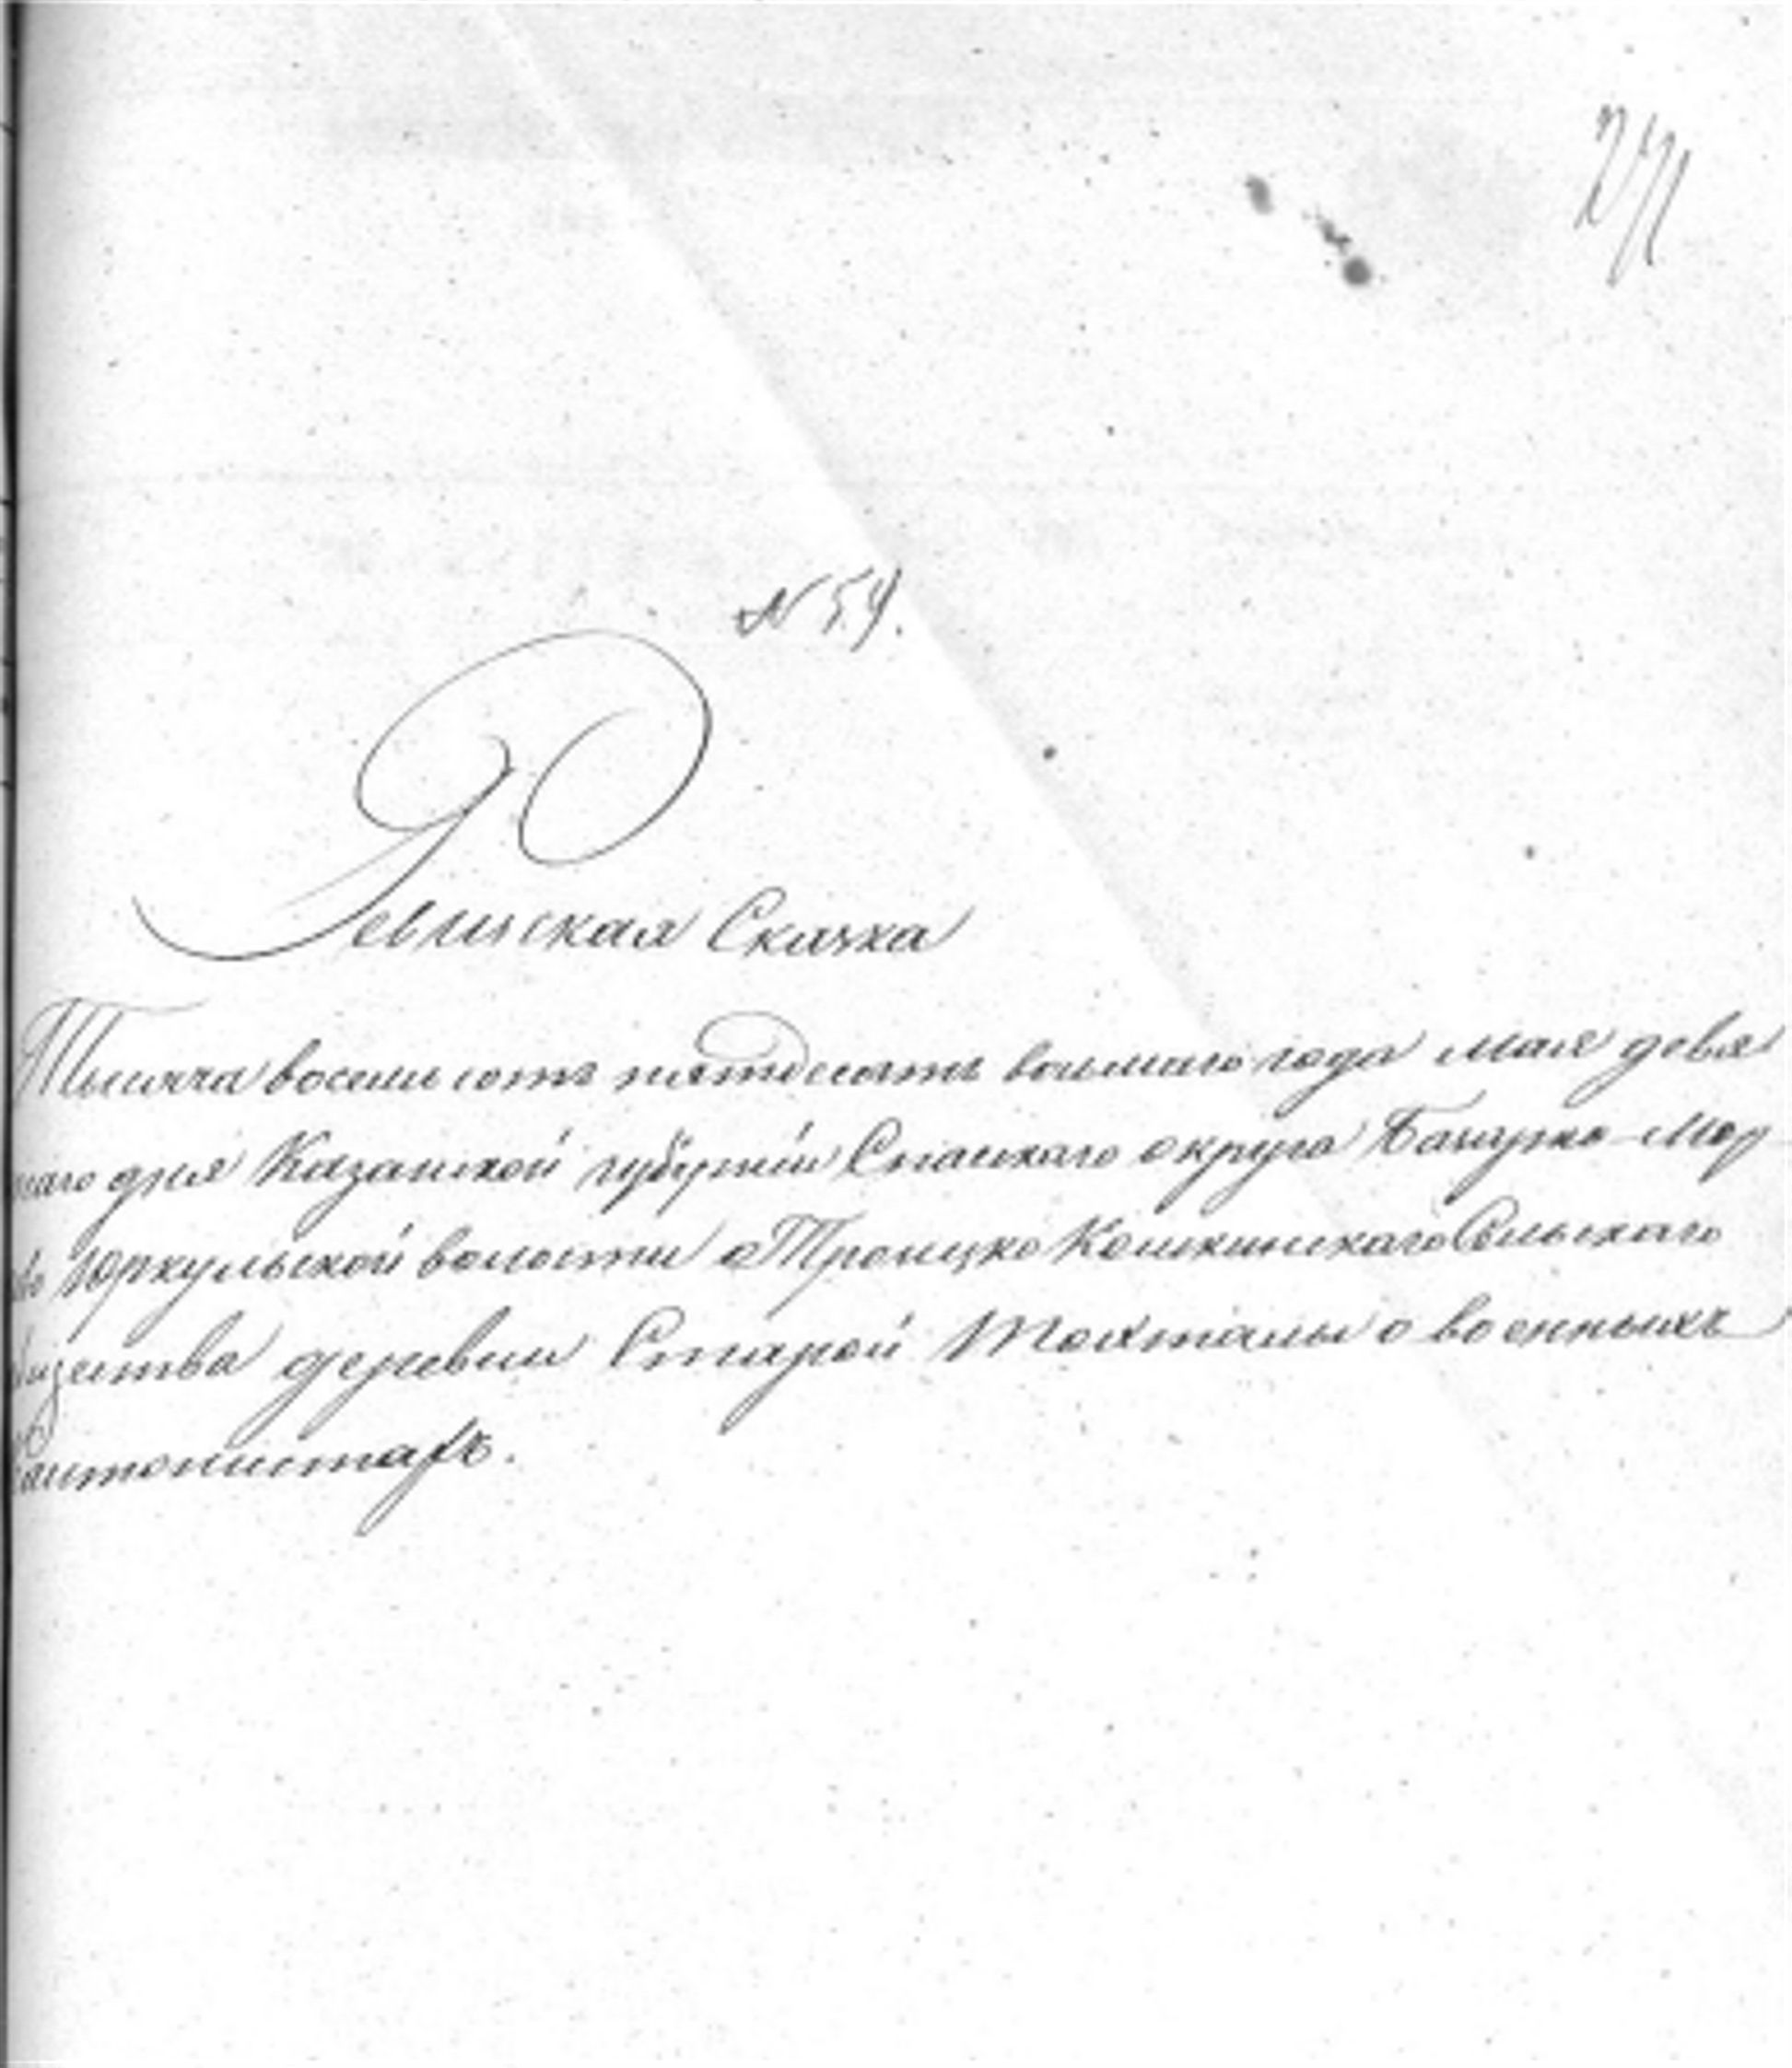 271
N 54.
Ревизская Сказка
Тысяча восемь сотъ пятдесятъ восьмаго года мая девя
таго дня Казанской губерніи Спаскаго округа Мор
Юркульской волости Троицко Кошкинскаго Сельскаго
щества деревни Старой Тохталы о военныхъ
антонистахъ.